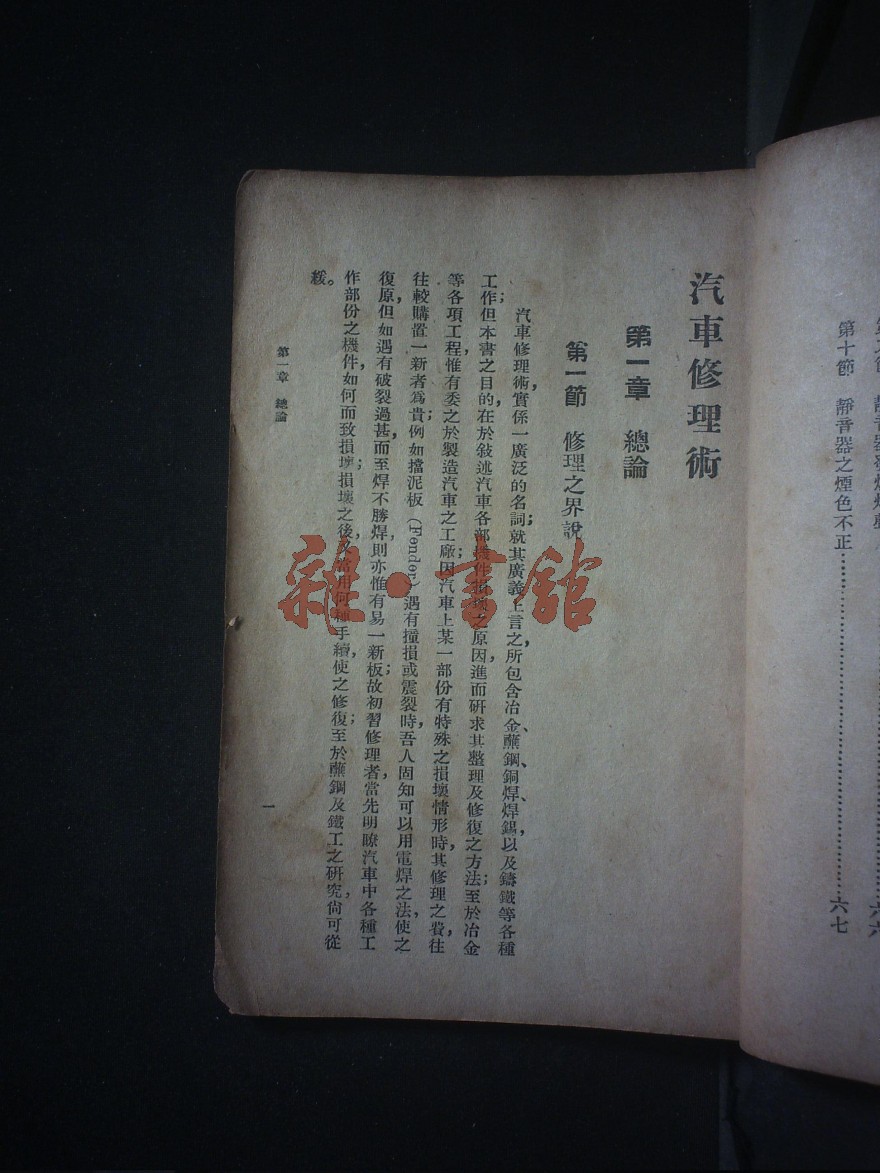 第十節　靜音器之煙色不正……………………六七
汽車修理術
第一章　總論
第一節　修理之界說
汽車修理術，實係一廣泛的名詞；就其廣義上言之，所包含冶金、蘸鋼、銅焊、焊錫，以及鑄鐵等各種
工作；但本書之目的，在於敍述汽車各部機件損壞之原因，進而研求其整理及修復之方法；至於冶金
等各項工程，惟有委之於製造汽車之工廠；因汽車上某一部份有特殊之損壞情形時，其修理之費，往
往較購置一新者爲貴；例如擋泥板（Fender）遇有撞損或震裂時，吾人固知可以用電焊之法，使之
復原，但如遇有破裂過甚，而至焊不勝焊，則亦惟有易一新板；故初習修理者，當先明瞭汽車中各種工
作部份之機件，如何而致損壞；損壞之後，又當用何種手續，使之修復；至於蘸鋼及鐵工之研究，尙可從
緩。
第一章　總論
一
雜·書館